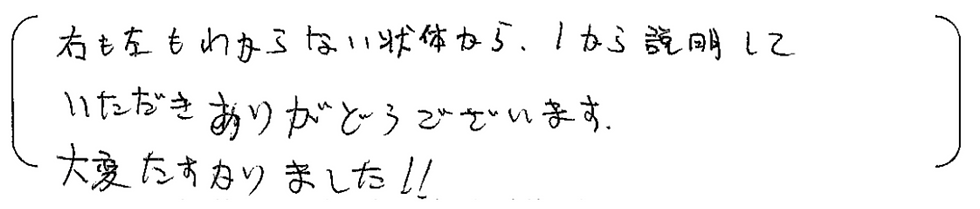 右も左もわからない状体から、1から説明して
いただきありがどうございます。
大変たすかりました!!